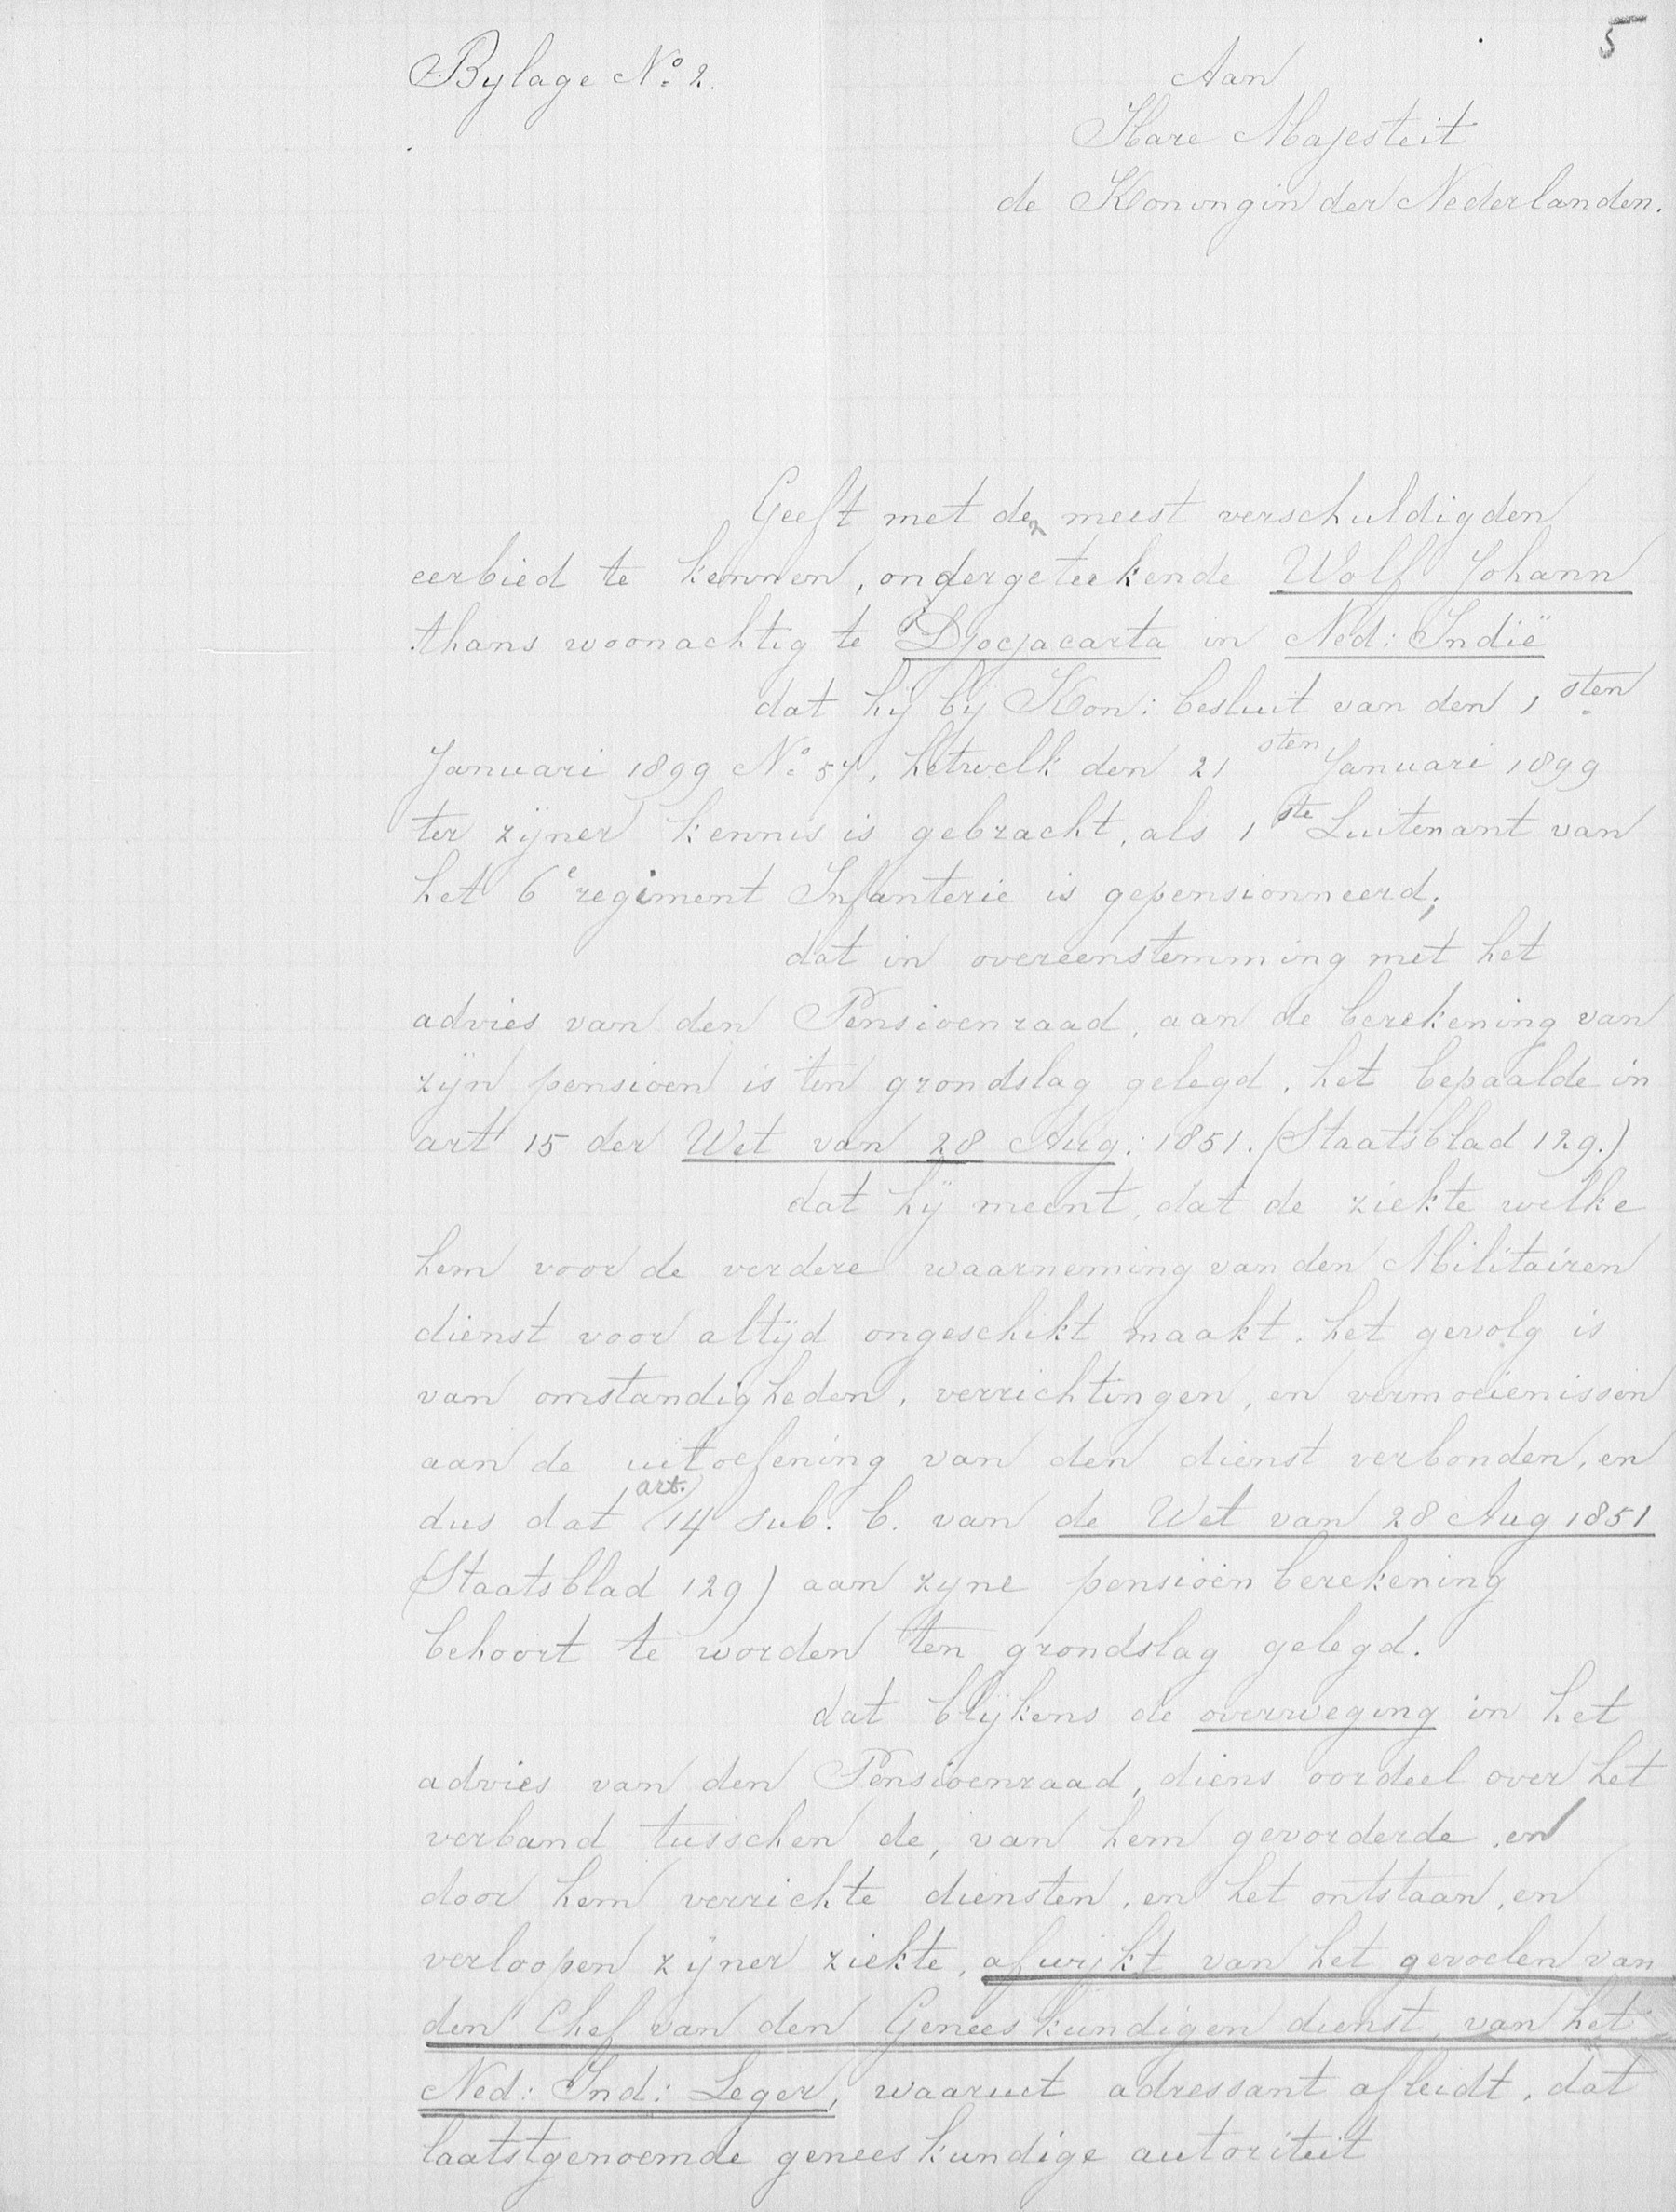 5
Bylage No. 2.
Aan
Hare Majesteit
de Koningin der Nederlanden.
Geeft met den meest verschuldigden
eerbied te kennen, ondergeteekende Wolf Johann
thans woonachtig te Djocjacarta in Ned: Indië
dat hij bij Kon: besluit van den 1sten
Januari 1899 No. 57, hetwelk den 21sten Januari 1899
ter zijner kennis is gebracht, als 1ste Luitenant van
het 6e regiment Infanterie is gepensionneerd;
dat in overeenstemming met het
advies van den Pensioenraad, aan de berekening van
zijn pensioen is ten grondslag gelegd, het bepaalde in
art 15 der Wet van 28 Aug: 1851. (Staatsblad 129.)
dat hij meent, dat de ziekte welke
hem voor de verdere waarneming van den Militairen
dienst voor altijd ongeschikt maakt, het gevolg is
van omstandigheden, verrichtingen, en vermoeienissen
aan de uitoefening van den dienst verbonden, en
dus dat art. 14 sub. b. van de Wet van 28 Aug 1851
(Staatsblad 129) aan zyne pensioen berekening
behoort te worden ten grondslag gelegd.
dat blijkens de overweging in het
advies van den Pensioenraad, diens oordeel over het
verband tusschen de, van hem gevorderde, en
door hem verrichte diensten, en het ontstaan, en
verloopen zijner ziekte, afwijkt van het gevoelen van
den Chef van den Geneeskundigen dienst, van het
Ned: Ind: Leger, waaruit adressant afleidt, dat
laatstgenoemde geneeskundige autoriteit